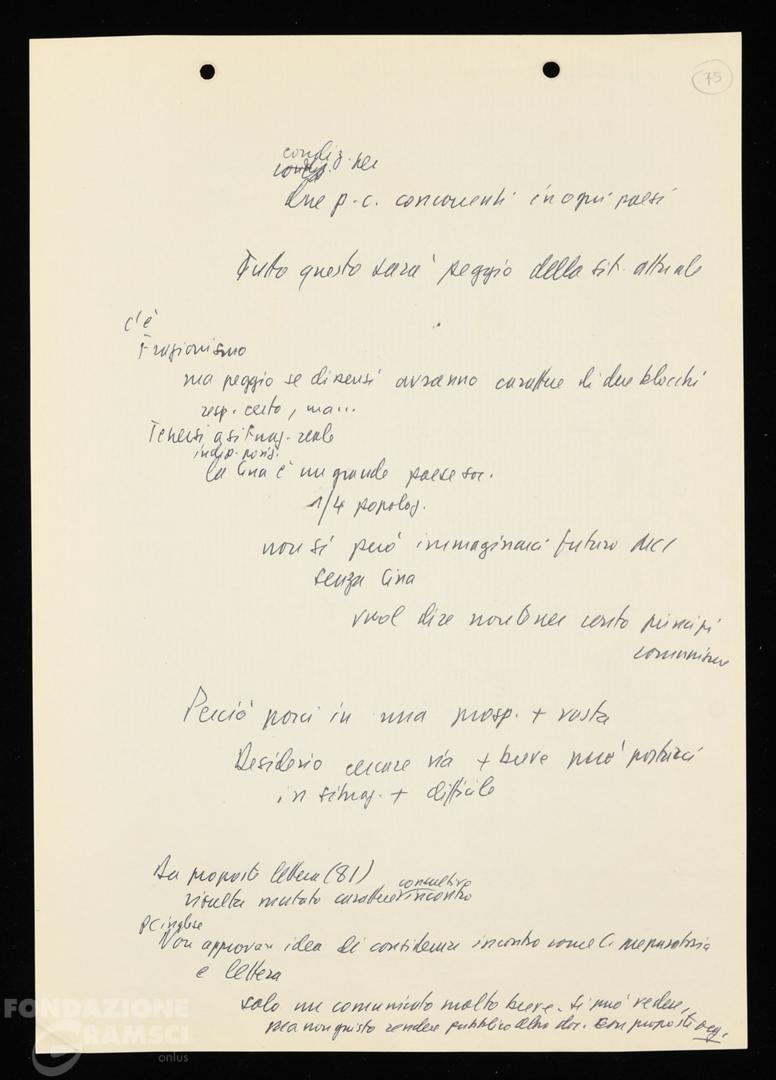 75
condiz. per
due p.c. concorrenti in ogni paesi
Tutto questo sarà peggio della sit. attuale
c'è
Frazionismo
ma peggio se dissensi avranno carattere di due blocchi
resp. certo, ma...
Tenersi a situaz. reale
indip. posiz.
la Cina è un grande paese soc.
1/4 popolaz.
non si può immaginarci futuro
senza Cina
vuol dire non tener conto principi
comunismo
Perciò porci in una prosp. + vasta
Desiderio cercare via + breve può portarci
in situaz. + difficile
Da proposte lettera (81)
consultivo
risulta mutato carattere incontro
PC inglese
Non approvan idea di considerare incontro come C. preparatoria
e lettera
solo un comunicato molto breve. Si può vedere,
ma non giusto rendere pubblico altro doc. con proposti
FONDAZIONE
GRAMSCI
onlus